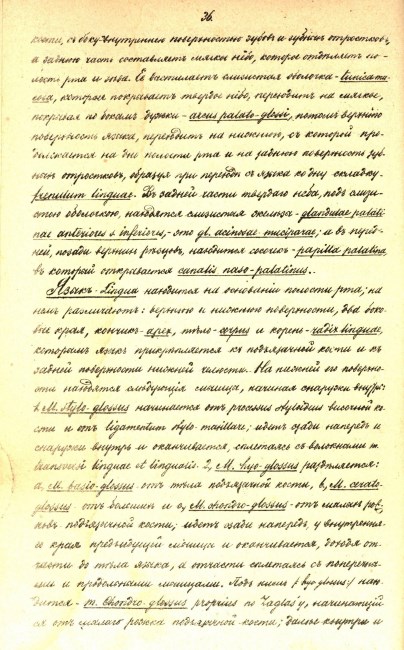 36.
кости, съ боку-внутреннею поверхностью зубовъ и зубныхъ отростковъ,
а заднюю часть составляетъ мягкое нёбо, которое отдѣляетъ по-
лость рта и зѣва. Ее выстилаетъ слизистая оболочка-
которая покрываетъ твердое нёбо, переходитъ на мягкое,
покрывая по бокамъ дужки-arcus palato-glossi, потомъ верхнюю
поверхность языка, переходитъ на нижнюю, съ которой про-
должается на дно полости рта и на заднюю поверхность зуб-
ныхъ отростковъ, образуя при переходѣ съ языка ко дну складку-
frenulum linguae. Въ задней части твердаго нёба, подъ слизи-
стою оболочкою, находятся слизистыя железы-glandulae palati-
nae anteriores s. inferiores,-это gl. acinosae muciparae; а въ перед-
ней, позади верхнихъ рѣзцовъ, находится сосочекъ-papilla palatina
въ которой открывается canalis naso-palatinus.
Языкъ-Lingua находится на основаніи полости рта; на
немъ различаютъ: верхнюю и нижнюю поверхности, два боко-
вые края, кончикъ-apex, тѣло-corpus и корень-radix linguae,
которымъ языкъ прикрѣпляется къ подъязычной кости и къ
задней поверхности нижней челюсти. На нижней его поверхно-
сти находятся слѣдующія мышцы, начиная снаружи внутрь:
1, M. Stylo-glossus начинается отъ processus styloideus височной ко-
сти и отъ ligamentum stylo-maxillare; идетъ сзади напередъ и
снаружи внутрь и оканчивается, сплетаясь съ волокнами m.
linguae et lingualis. 2, M. hyo-glossus раздѣляется:
a, M. basio-glossus-отъ тѣла подъязычной кости, b, M. cerato-
glossus-отъ большихъ и c, M. chondro-glossus-отъ малыхъ рож-
ковъ подъязычной кости; идетъ сзади напередъ, у внутрення-
го края предъидущей мышцы и оканчивается, доходя от-
части до тѣла языка, а отчасти сплетаясь съ попереч-
ными и продольными мышцами. Подъ нимъ (hyo glossus) нахо-
дится-m. Chondro-glossus proprius по Zaglas'у, начинающій-
ся отъ малаго рожка подъязычной кости; далѣе кнутри и